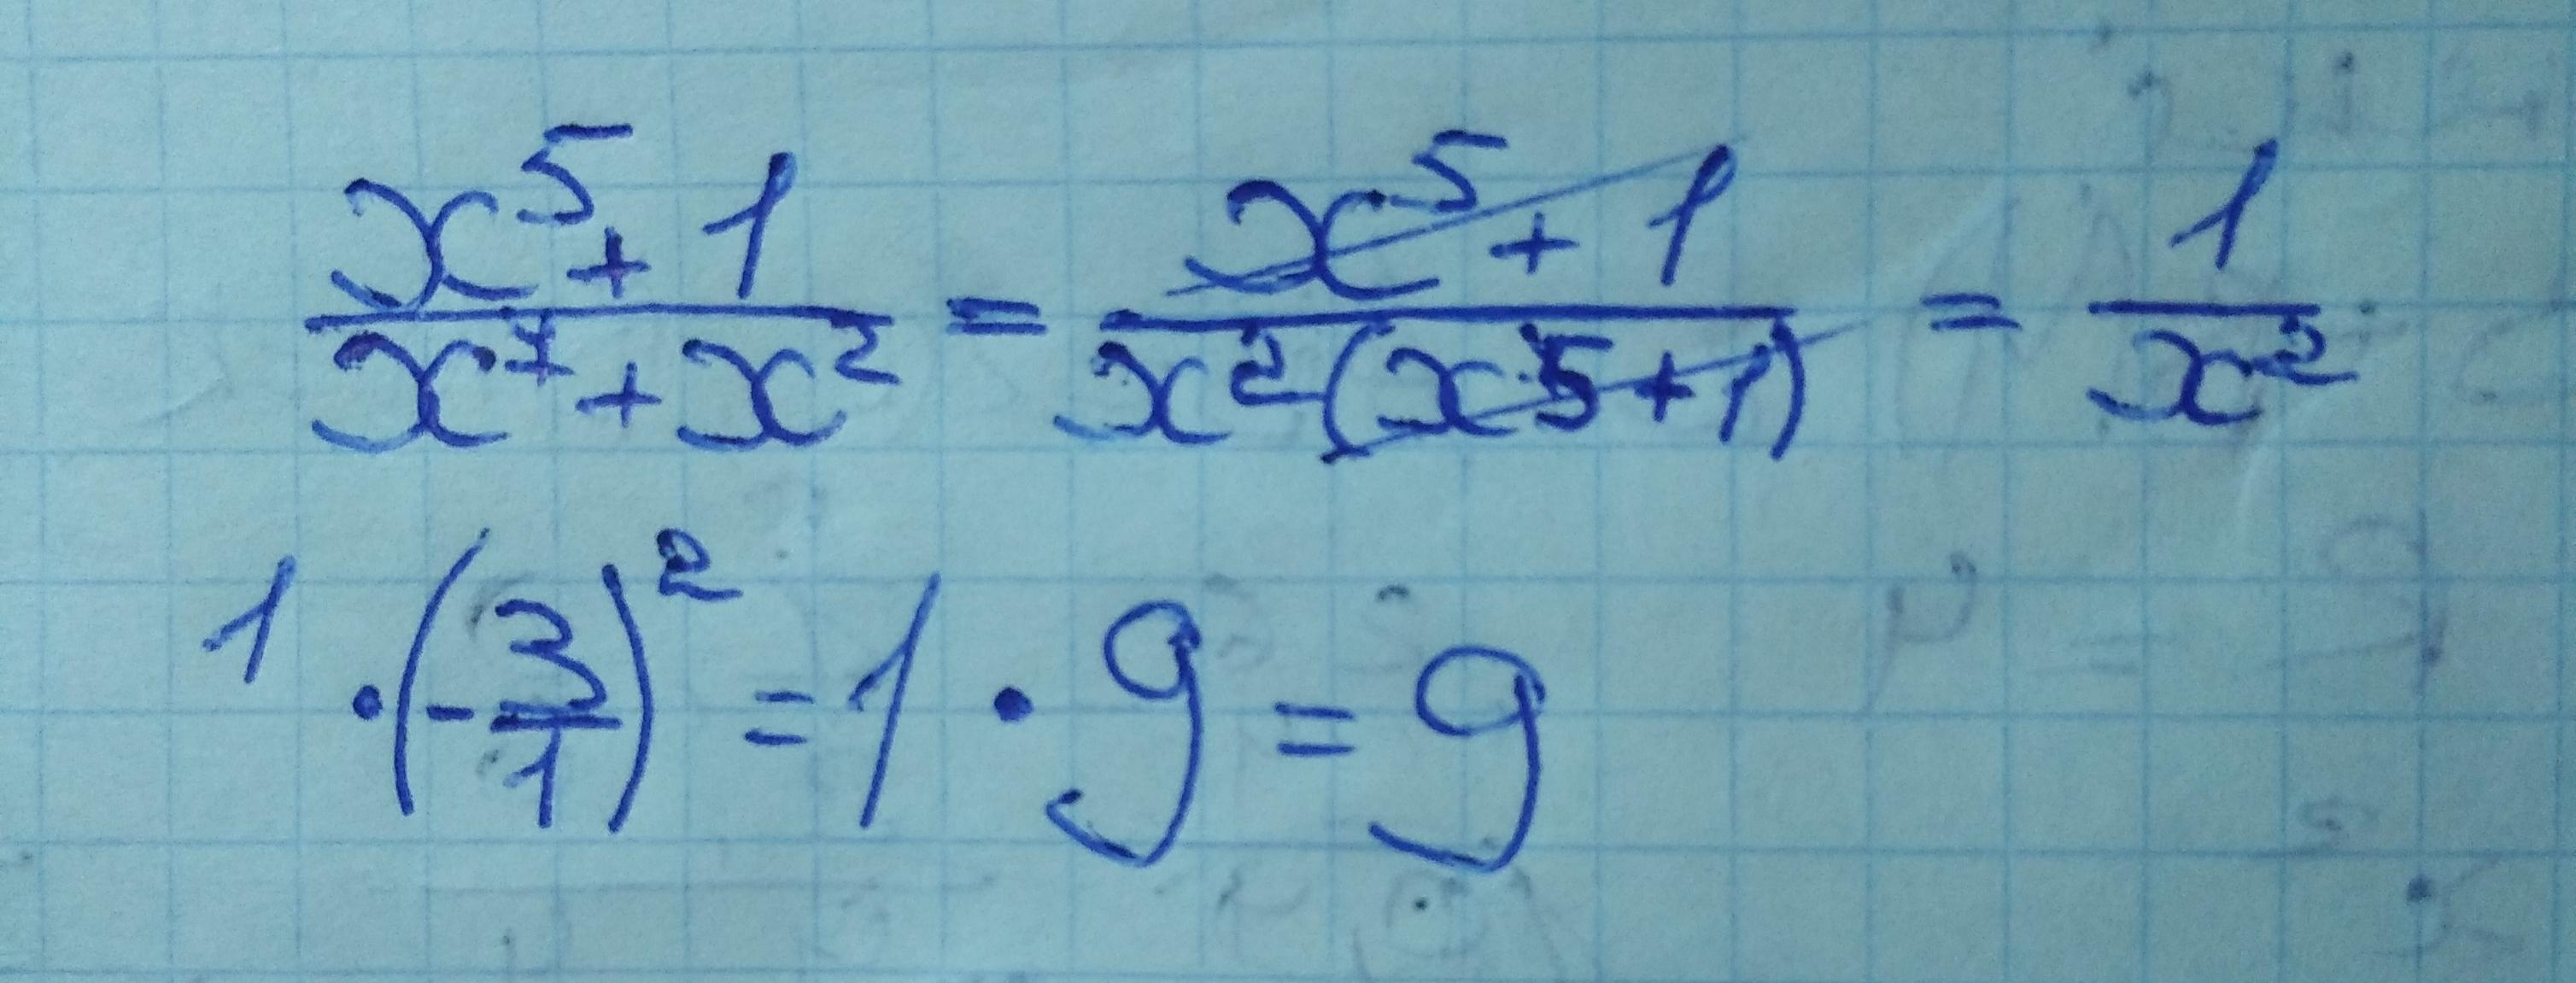 (x⁵+1)/(x⁷+x²) = (x⁵+1)/(x²(x⁵+1)) = 1/x²
1 · (-3/1)² = 1 · 9 = 9